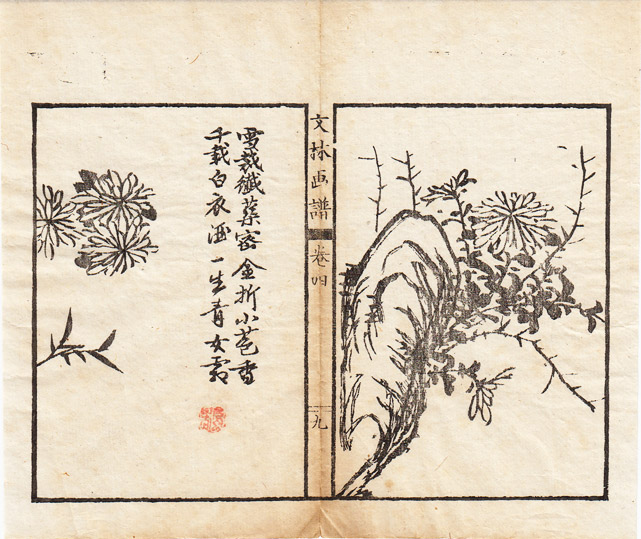 文林画譜
卷四
九
雪裁纖蘂密金折小苞香
千載白衣酒一生青女霜